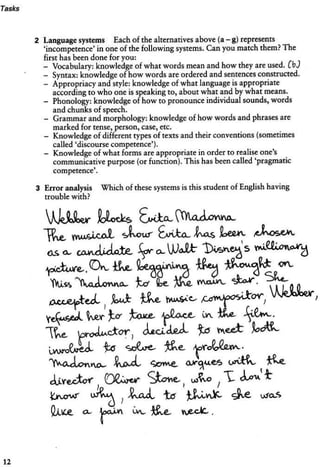 Tasks
2 Language systems Each of the alternatives above (a – g) represents
'incompetence' in one of the following systems. Can you match them? The
first has been done for you:
– Vocabulary: knowledge of what words mean and how they are used. (b)
– Syntax: knowledge of how words are ordered and sentences constructed.
– Appropriacy and style: knowledge of what language is appropriate
according to who one is speaking to, about what and by what means.
– Phonology: knowledge of how to pronounce individual sounds, words
and chunks of speech.
– Grammar and morphology: knowledge of how words and phrases are
marked for tense, person, case, etc.
– Knowledge of different types of texts and their conventions (sometimes
called 'discourse competence').
– Knowledge of what forms are appropriate in order to realise one's
communicative purpose (or function). This has been called 'pragmatic
competence'.
3 Error analysis Which of these systems is this student of English having
trouble with?
Webber blocks Evita (Madonna.
The musical show Evita has been chosen
as a candidate for a Walt Disney's millionary
picture. On the beggining they thought on
Miss Madonna to be the main star. She
accepted, but the music compositor, Webber,
refused her to take place in the film.
The productor, decided to meet both
involved to solve the problem.
Madonna had some argues with the
director, Oliver Stone, who, I don't
know why, had to think she was
like a pain in the neck.
12